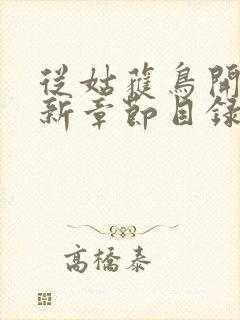 從姑獲鳥開
新章節目錄
高橋泰